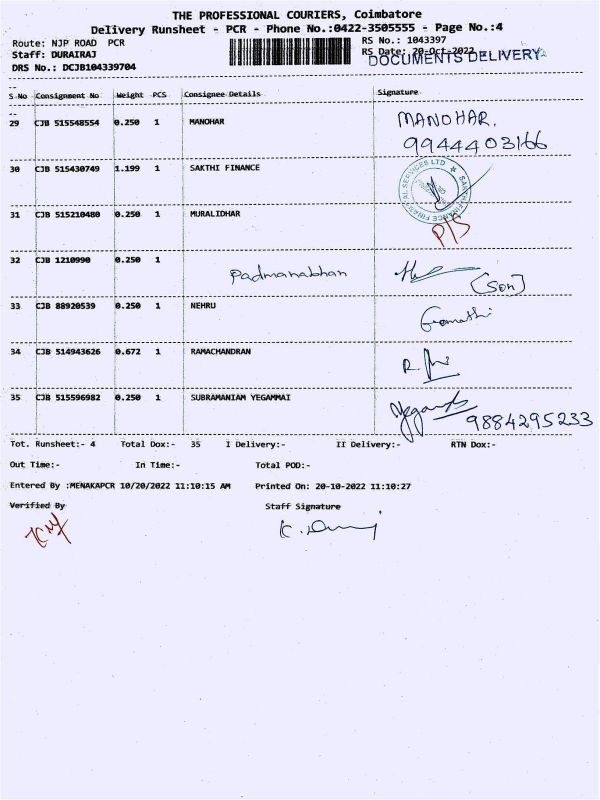 THE PROFESSIONAL COURIERS, Coimbatore
Delivery Runsheet - PCR - Phone No.:0422-3505555 - Page No.:4
Route: NJP ROAD PCR
RS No.: 1043397
Staff: DURAIRAJ
RS Date: 20-Oct-2022
DOCUMENTS DELIVERY
DRS No.: DCJB104339704
S No Consignment No Weight PCS Consignee Details Signature
29 CJB 515548554 0.250 1 MANOHAR MANOHAR.
9944403166
30 CJB 515430749 1.199 1 SAKTHI FINANCE
SAKTHI FINANCE FINANCIAL SERVICES LTD
31 CJB 515210480 0.250 1 MURALIDHAR
P/S
32 CJB 1210990 0.250 1
Padmanabhan
[Son]
33 CJB 88920539 0.250 1 NEHRU
Gomathi
34 CJB 514943626 0.672 1 RAMACHANDRAN
35 CJB 515596982 0.250 1 SUBRAMANIAM YEGAMMAI
9884295233
Tot. Runsheet:- 4 Total Dox:- 35 I Delivery:- II Delivery:- RTN Dox:-
Out Time:- In Time:- Total POD:-
Entered By :MENAKAPCR 10/20/2022 11:10:15 AM Printed On: 20-10-2022 11:10:27
Verified By Staff Signature